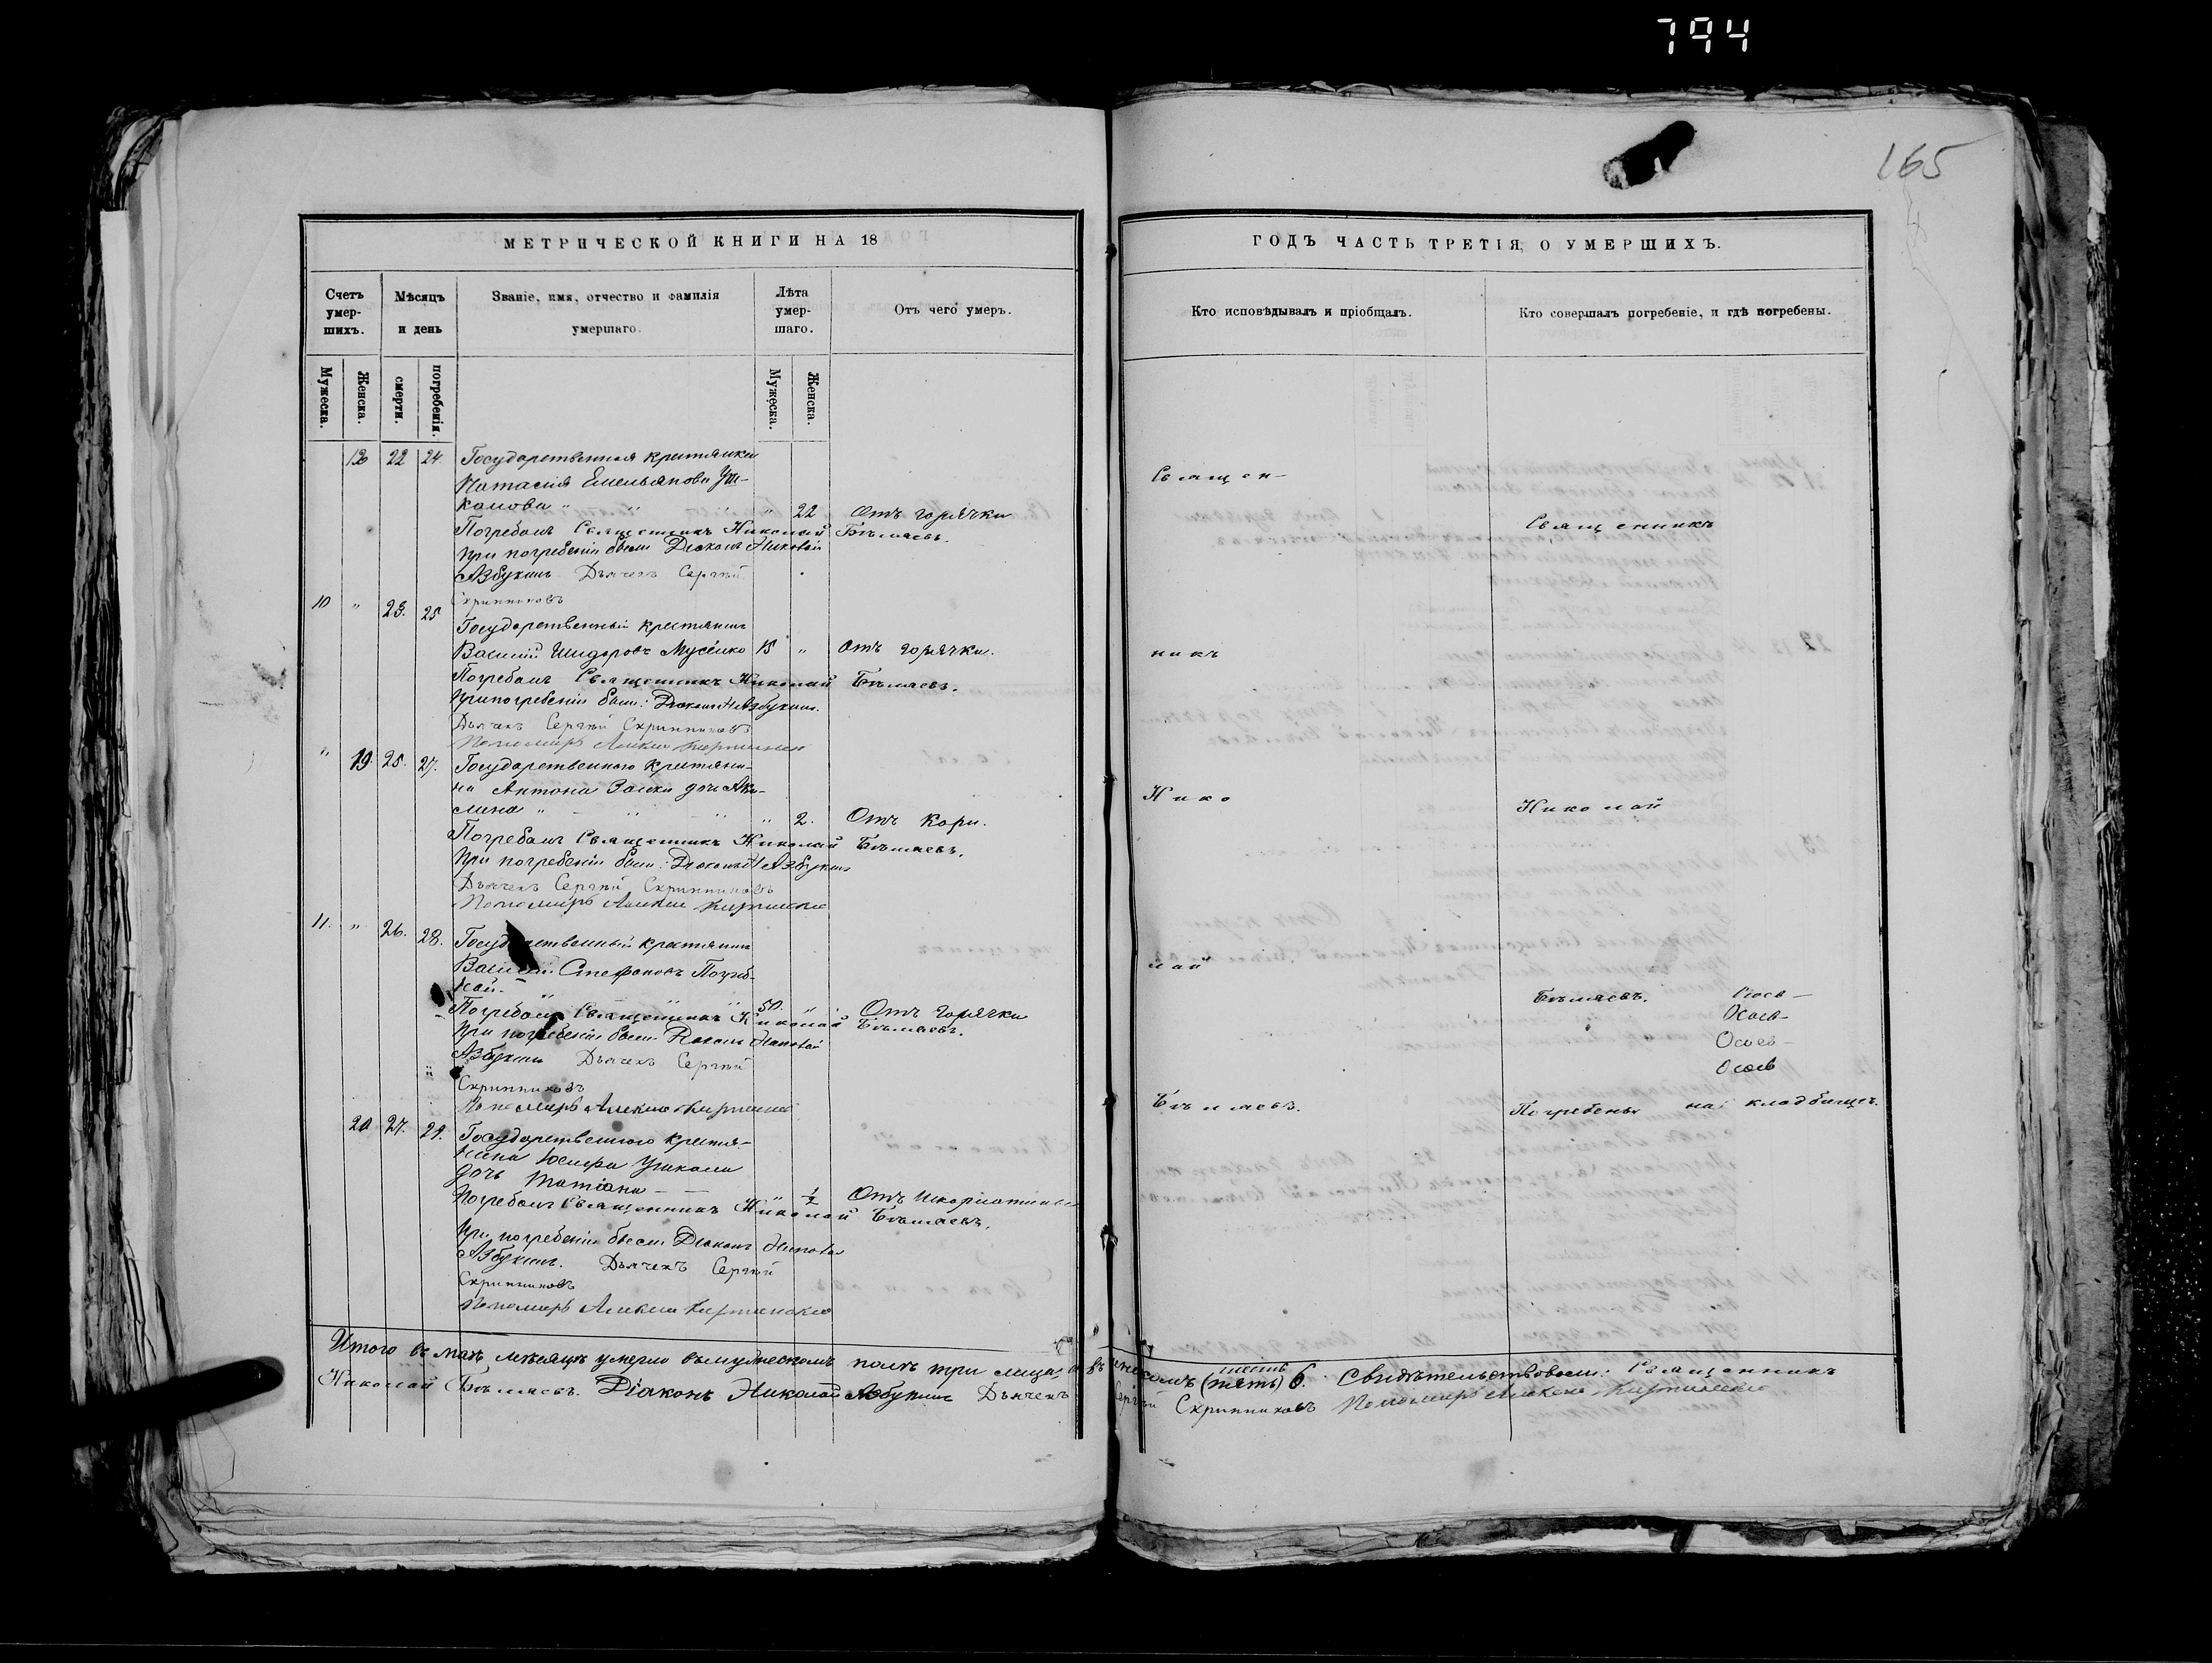 794
165
МЕТРИЧЕСКОЙ КНИГИ НА 18
ГОДЪ ЧАСТЬ ТРЕТІЯ, О УМЕРШИХЪ.
Счетъ умер-шихъ.
Мѣсяцъ и день
Званіе, имя, отчество и фамилія умершаго.
Лѣта умер-шаго.
Отъ чего умеръ.
Кто исповѣдывалъ и пріобщалъ.
Кто совершалъ погребеніе, и гдѣ погребены.
Мужеска.
Женска.
смерти.
погребенія.
Мужеска.
Женска.
22 24. Государственная крестьянка
Наталія Емельянова Уш-
калова " " " " 22 Отъ горячки
Погребалъ Священникъ Николай Бѣляевъ.
При погребеніи были Діаконъ Николай
Азбукинъ Дьячекъ Сергѣй
Скрипниковъ
10 " 23. 25 Государственный крестьянинъ
Василій Исидоровъ Мусѣнко 15 " Отъ горячки.
Погребалъ Священникъ Николай Бѣляевъ.
При погребеніи были: Діаконъ Н Азбукинъ.
Дьячекъ Сергѣй Скрипниковъ
Пономарь Алексѣй
" 19. 25. 27. Государственного крестьяни-
на Антона Заики дочь Аки-
лина " " " " 2. Отъ кори.
Погребалъ Священникъ Николай Бѣляевъ.
При погребеніи были: Діаконъ Н Азбукинъ
Дьячекъ Сергѣй Скрипниковъ
Пономарь Алексѣй
11. " 26. 28. Государственный крестьянинъ
Василій Стефановъ
50. " Отъ горячки
Погребалъ Священникъ Николай Бѣляевъ.
При погребеніи были Діаконъ Николай
Азбукинъ Дьячекъ Сергѣй
Скрипниковъ
Пономарь Алексѣй
20 27. 29. Государственного крестья-
нина Іосифа Ушкала
дочь Татіана — — " ½ Отъ
Погребалъ Священникъ Николай Бѣляевъ.
При погребеніи были Діаконъ Николай
Азбукинъ. Дьячекъ Сергѣй
Скрипниковъ
Пономарь Алексѣй
Священ-
никъ
Нико
лай
Бѣляевъ.
Священникъ
Николай
Бѣляевъ.
Погребены на кладбищѣ.
Итого въ маѣ мѣсяцѣ умерло въ мужескомъ полѣ три лица, а въ женскомъ (пять) шесть 6. Свидѣтельствовали: Священникъ
Николай Бѣляевъ. Діаконъ Николай Азбукинъ Дьячекъ Сергѣй Скрипниковъ Пономарь Алексѣй